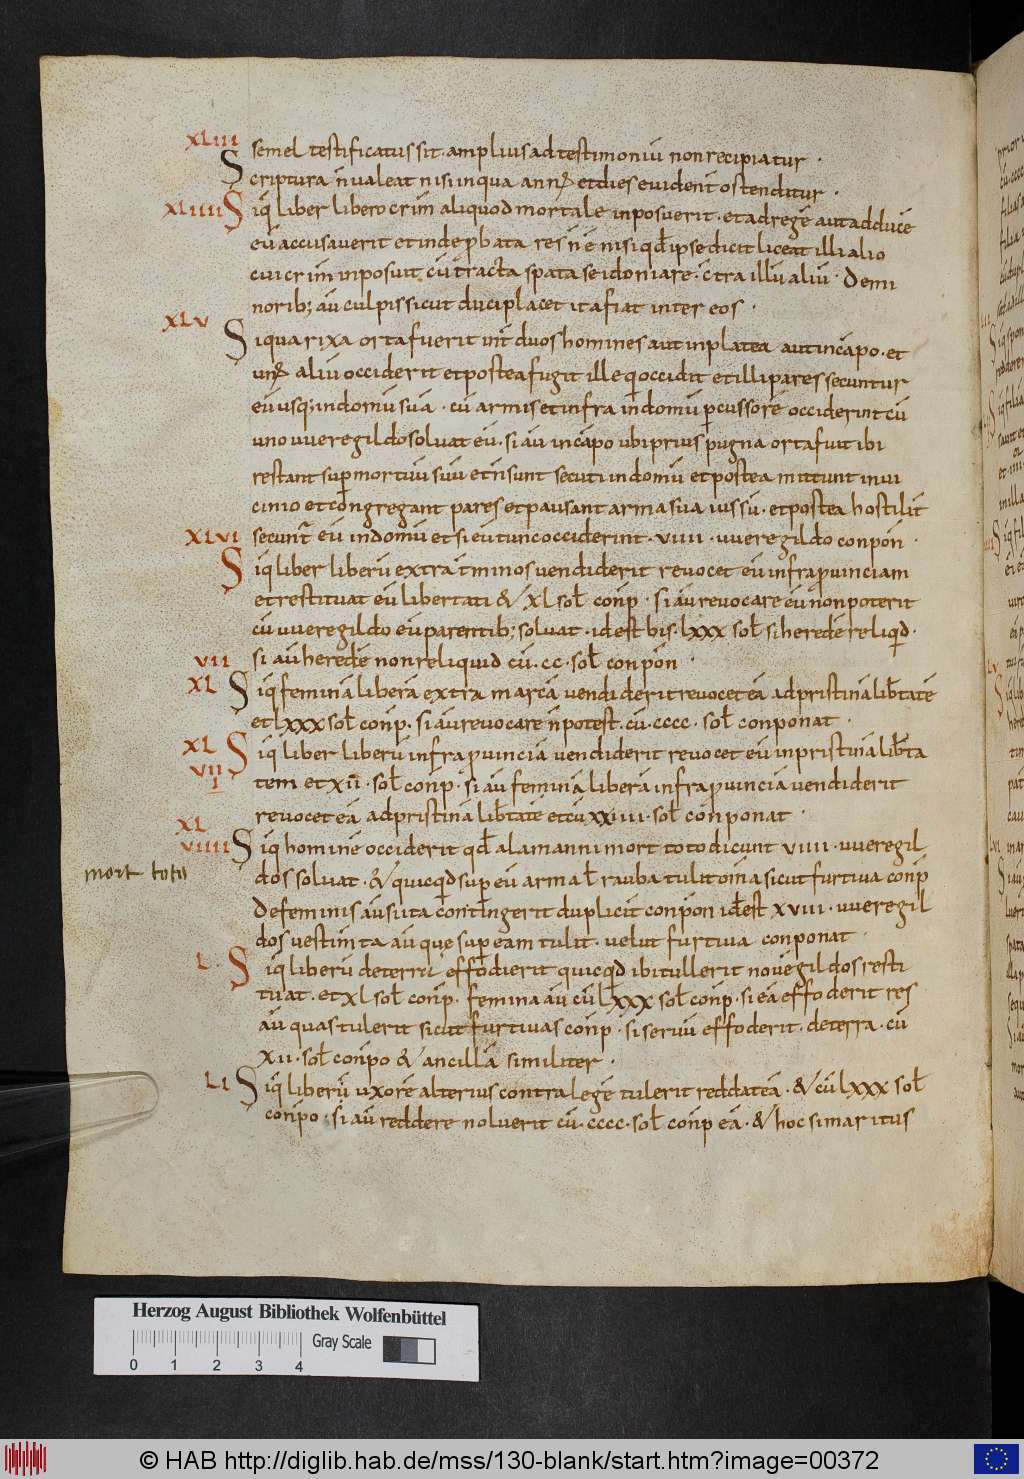 XLIII
semel testificatus sit · amplius ad testimoniū non recipiatur ·
Scriptura ñ valeat nisi in qua annꝰ et dies evident̄ ostenditur ·
XLIIII Siq̄ liber libero crim̄ aliquod mortale inposuerit · et ad regē aut ad ducē
eū accusaverit et inde p̱bata res ñ ē nisi qđ ipse dicit liceat illi alio
cui crim̄ inposuit cū tracta spata se idoniare · c̄tra illū aliū · De mi
norib; aū culpis sicut duci placet ita fiat inter eos ·
XLV
Si qua rixa orta fuerit int̄ duos homines aut in platea aut in cāpo · et
unꝰ aliū occiderit et postea fugit ille qui occidit et illi pares secuntur
eū usq; in domū suā · cū armis et infra in domū p̱cussorē occiderint cū
uno vveregildo solvat eū · si aū in cāpo ubi prius pugna orta fuit ibi
restant sup̱ mortuū suū et ñ sunt secuti in domū et postea mittunt in vi
cinio et congregant pares et pausant arma sua iussū · et postea hostilit̄
XLVI secunt̄ eū in domū et si eū tunc occiderint · VIIII · vveregildo conpoñ ·
Siq̄ liber liberū extra t̄minos vendiderit revocet eū infra p̱vinciam
et restituat eū libertati & XL soł conp̄ · si aū revocare eū non poterit
cū vveregildo eū parentib; solvat · id est bis · LXXX soł si heredē reliqđ ·
si aū heredē non reliquid cū · CC · soł conpoñ ·
VII
XL Siq̄ feminā liberā extra marcā vendiderit revocet eā ad pristinā lib̄tatē
et LXXX soł conp̄ · si aū revocare ñ potest · cū · CCCC · soł conponat ·
XL Siq̄ liber liberū infra p̱vinciā vendiderit revocet eū in pristinā lib̄ta
VII
I
tem et XII · soł conp̄ · si aū feminā liberā infra p̱vinciā vendiderit
revocet eā ad pristinā lib̄tatē et cū XXIIII · soł conponat ·
XL
VIIII Siq̄ hominē occiderit qđ alamanni mort toto dicunt VIIII · vveregil
mort toto
dos solvat · & quicqđ sup̱ eū arma ł rauba tulit om̄ia sicut furtiva conp̄
De feminis aū si ita contingerit duplicit̄ conpoñ id est XVIII · vveregil
dos vestim̄ta aū que sup̱ eam tulit · velut furtiva conponat ·
L · Siq̄ liberū de terrā effodierit quicqđ ibi tullerit novēgildos resti
tuat · et XL soł conp̄ · femina aū cū LXXX soł conp̄ · si eā effoderit res
aū quas tulerit sicut furtivas conp̄ · si servū effoderit · de terra · cū
XII · soł conpo & ancillā similiter ·
LI Siq̄ liberū uxorē alterius contra legē tulerit reddat eā · & cū LXXX soł
conpo · si aū reddere noluerit cū · CCCC · soł conp̄ eā · & hoc si maritus
Herzog August Bibliothek Wolfenbüttel
Gray Scale
0 1 2 3 4
© HAB http://diglib.hab.de/mss/130-blank/start.htm?image=00372